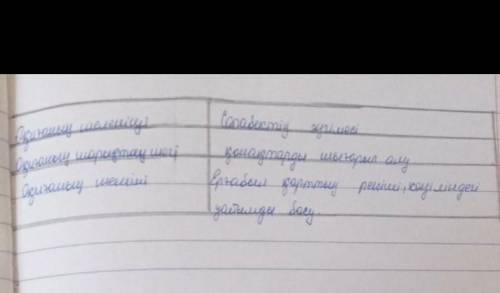 Оқиғаның шиеленісуі Сарабектің әңгімесі
Оқиғаның шарықтау шегі қонақтарды шығарып алу
Оқиғаның шешімі Ерғабыл қарттың реніші, көңіліндегі
зайылды басу.